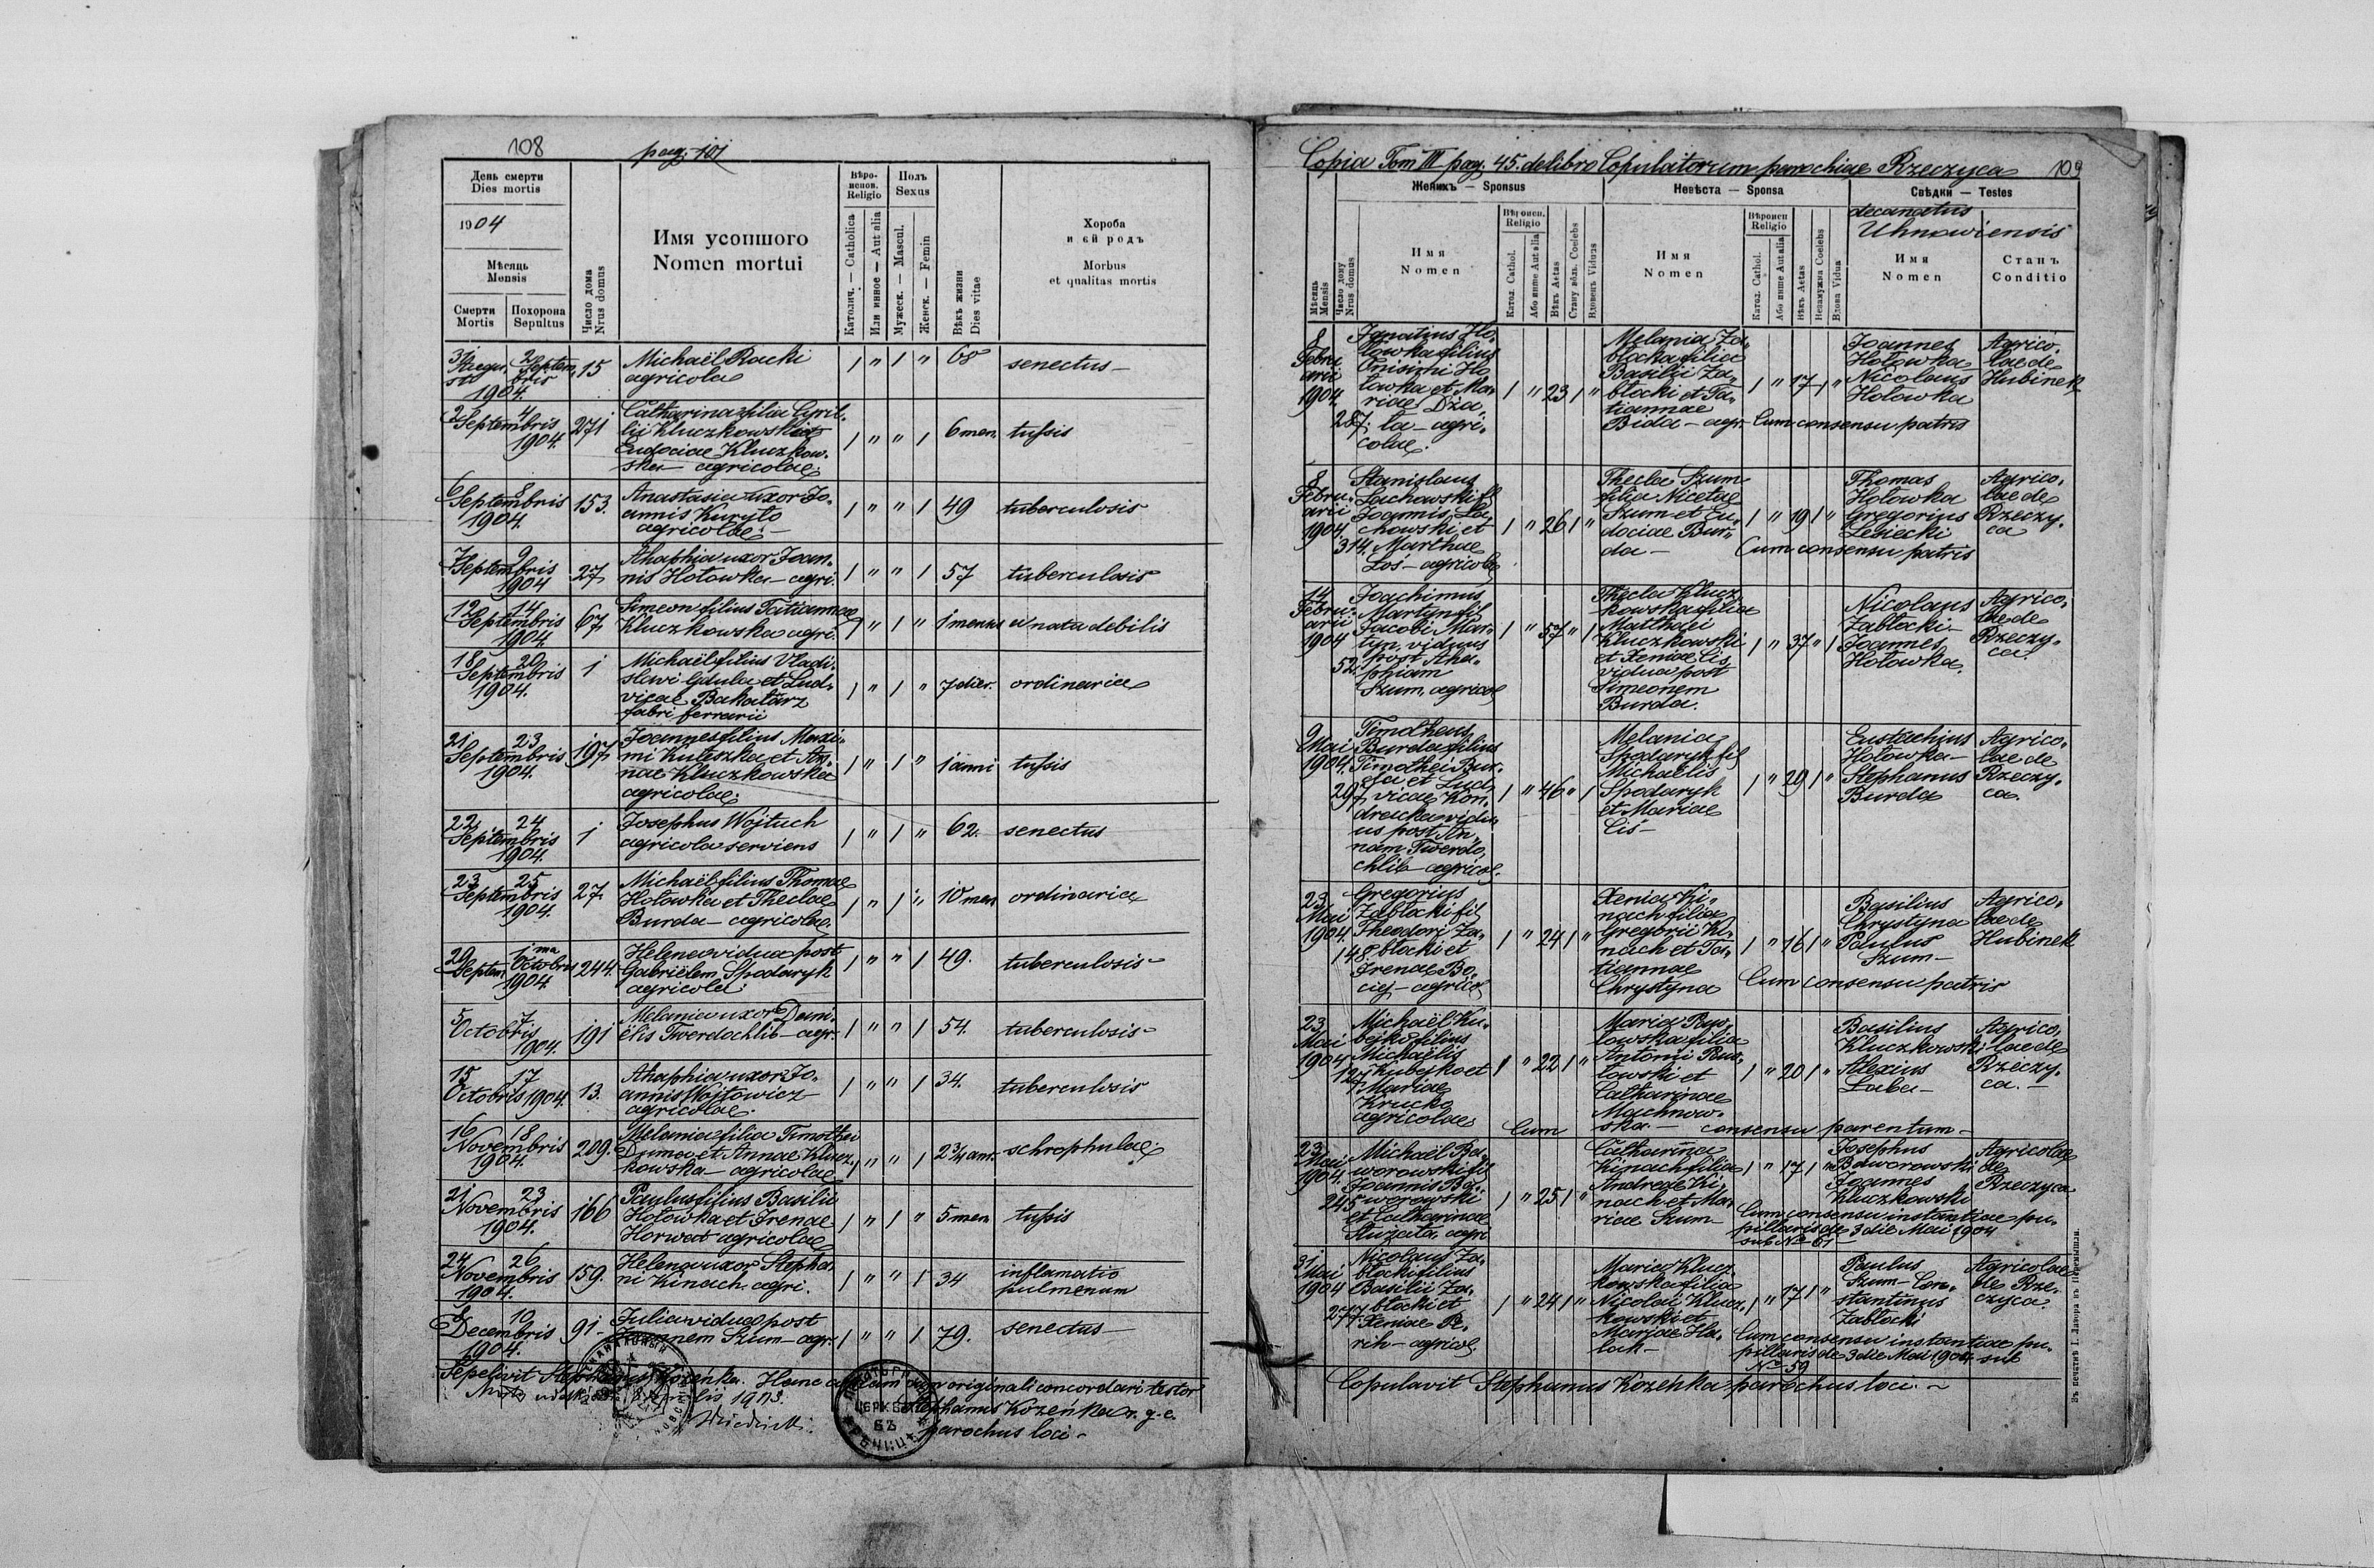 108
pag. 101
День смерти
Dies mortis
1904
Мѣсяць
Mensis
Смерти
Mortis
Похорона
Sepultus
Число дома
Nrus domus
Имя усопшого
Nomen mortui
Вѣро-
испов.
Religio
Католич. — Catholica
Или инное — Aut alia
Полъ
Sexus
Мужеск. — Mascul.
Женск. — Femin
Вѣкъ жизни
Dies vitae
Хороба
и єй родъ
Morbus
et qualitas mortis
31 2
Augu- Septem-
sti bris
1904.
15
Michaël Racki
agricola
1 " 1 " 68 senectus —
2 4
Septembris
1904.
271
Catharina filia Cyril-
lii Kluczkowski et
Eudociae Kluczkow-
ska — agricolae.
1 " " 1 6 men. tussis
6 8
Septembris
1904.
153.
Anastasia uxor Jo-
annis Kuryło
agricolae —
1 " " 1 49 tuberculosis
7 9
Septembris
1904
27
Ahaphia uxor Joan-
nis Hołowka — agri.
1 " " 1 57 tuberculosis
12 14
Septembris
1904.
67
Simeon filius Tatiannae
Kluczkowska agri.
1 " 1 " 1 mensis a nata debilis
18 20
Septembris
1904.
1
Michaël filius Vladi-
slavi Gdula et Lud-
vicae Bakałarz
fabri ferrarii
1 " 1 " 7 dier. ordinaria
21 23
Septembris
1904.
197
Joannes filius Maxi-
mi Kuleszka et An-
nae Kluczkowska
agricolae.
1 " 1 " 1 anni tussis
22 24
Septembris
1904.
1
Josephus Wojtuch
agricola serviens
1 " 1 " 62. senectus
23 25
Septembris
1904.
27
Michaël filius Thomae
Hołowka et Theclae
Burda — agricolae.
1 " 1 " 10 men ordinaria
29 1ma
Septem. Octobris
1904
244.
Helena vidua post
Gabrielem Spodaryk
agricola.
1 " " 1 49. tuberculosis
5 7
Octobris
1904.
191
Melania uxor Dani-
ëlis Twerdochlib — agr.
1 " " 1 54. tuberculosis
15 17
Octobris 1904.
13.
Ahaphia uxor Jo-
annis Wojtowicz
agricolae.
1 " " 1 34. tuberculosis
16 18
Novembris
1904.
209.
Melania filia Timothei
Duma et Annae Klucz-
kowska — agricolae
1 " " 1 2¾ ann. schrophulae.
21 23
Novembris
1904.
166
Paulus filius Basilii
Hołowka et Irenae
Horwat agricolae
1 " 1 " 5 men tussis
24 26
Novembris
1904.
159.
Helena uxor Stepha-
ni Kinach agri.
1 " " 1 34 inflamatio
pulmenum
8 10
Decembris
1904.
91 —
Julia vidua post
Joannem Szum — agr.
1 " " 1 79. senectus —
Sepelivit Stephanus Kozeńka. Hanc copiam cum originali concordari testor
Stephanus Kozeńka r. g. c.
parochus loci —
1905.
ЦЕРКВЕ
ВЪ
РѢЧИЦѢ
Copia Tom III pag. 45. de libro Copulatorum parochiae Rzeczyca
109
decanatus
Uhnowiensis
Женихъ — Sponsus
Невѣста — Sponsa
Свѣдки — Testes
Мѣсяць
Mensis
Число дому
Nrus domus
Имя
Nomen
Вѣроисп.
Religio
Катол. Cathol.
Або инше Aut alia
Вѣкъ Aetas
Стану вѣльн. Coelebs
Вдовецъ Viduus
Имя
Nomen
Вѣроисп
Religio
Катол. Cathol.
Або инше Aut alia
Вѣкъ Aetas
Незамужна Coelebs
Вдова Vidua
Имя
Nomen
Станъ
Conditio
8
Febru-
arii
1904.
287.
Ignatius Ho-
łowka filius
Onisimi Ho-
łowka et Ma-
riae Dża-
ła — agri-
colae.
1 " 23 1 "
Melania Za-
błocka filia
Basilii Za-
błocki et Ta-
tiannae
Bida — agr.
1 " 17 1 "
Cum consensu patris
Joannes
Hołowka —
Nicolaus
Hołowka
Agrico-
lae de
Hubinek
8
Febru-
arii
1904.
314.
Stanislaus
Lachowski fil
Joannis La-
chowski et
Marthae
Łoś — agricolae
1 " 26 1 "
Thecla Szum
filia Nicetae
Szum et Eu-
dociae Bur-
da —
1 " 19 1 "
Cum consensu patris
Thomas
Hołowka
Gregorius
Lesiecki
Agrico-
lae de
Rzeczy-
ca
14
Febru-
arii
1904
52.
Joachimus
Martyn fil
Jacobi Mar-
tyn, viduus
post Aha-
phiam
Szum, agricol
1 " 57 " 1
Thecla Klucz-
kowska filia
Matthaei
Kluczkowski
et Xeniae Cis
vidua post
Simeonem
Burda.
1 " 37 " 1
Nicolaus
Zabłocki —
Joannes
Hołowka.
Agrico-
lae de
Rzeczy-
ca.
9
Mai
1904.
297
Timotheus
Burda filius
Timothei Bur-
da et Lud-
vicae Kon-
dracka vidu-
us post An-
nam Twerdo-
chlib — agricol.
1 " 46 " 1
Melania
Spodaryk fil
Michaëlis
Spodaryk
et Mariae
Ciś —
1 " 29 1 "
Eustachius
Hołowka —
Stephanus
Burda
Agrico-
lae de
Rzeczy-
ca.
23
Mai
1904.
148.
Gregorius
Zabłocki fil
Theodori Za-
błocki et
Irenae Bo-
ciej — agricol
1 " 24 1 "
Xenia Ki-
nach filia
Gregorii Ki-
nach et Ta-
tiannae
Chrystyna
1 " 16 1 "
Cum consensu patris
Basilius
Chrystyna
Paulus
Szum —
Agrico-
lae de
Hubinek
23
Mai
1904
127
Michaël Ku-
bejko filius
Michaëlis
Kubejko et
Mariae
Krucko
agricolae
1 " 22 1 "
Maria Rus-
łowska filia
Antonii Rus-
łowski et
Catharinae
Machnow-
ska. —
1 " 20 1 "
Cum consensu parentum —
Basilius
Kluczkowski
Alexius
Łaba —
Agrico-
lae de
Rzeczy-
ca. —
23
Mai
1904.
245
Michaël Ba-
worowski fil
Joannis Ba-
worowski
et Catharinae
agri
1 " 25 1 "
Catharina
Kinach filia
Andreae Ki-
nach et Ma-
riae Szum —
1 " 17 1 "
Josephus
Baworowski
Joannes
Kluczkowski
Agricolae
de
Rzeczyca
Cum consensu instantiae pu-
pillaris de 3 die Mai 1904
sub No 61
31
Mai
1904
277.
Nicolaus Za-
błocki filius
Basilii Za-
błocki et
Xeniae Re-
rih — agricol
1 " 24 1 "
Maria Klucz-
kowska filia
Nicolai Klucz-
kowski et
Mariae Ha-
lak —
1 " 17 1 "
Paulus
Szum — Con-
stantinus
Zabłocki
Agricolae
de Rze-
czyca.
Cum consensu instantiae pu-
pillaris de 3 die Mai 1904 sub
No 59
Copulavit Stephanus Kozeńka parochus loci. —
Въ печатнѣ І. Лазора въ Перемышли.